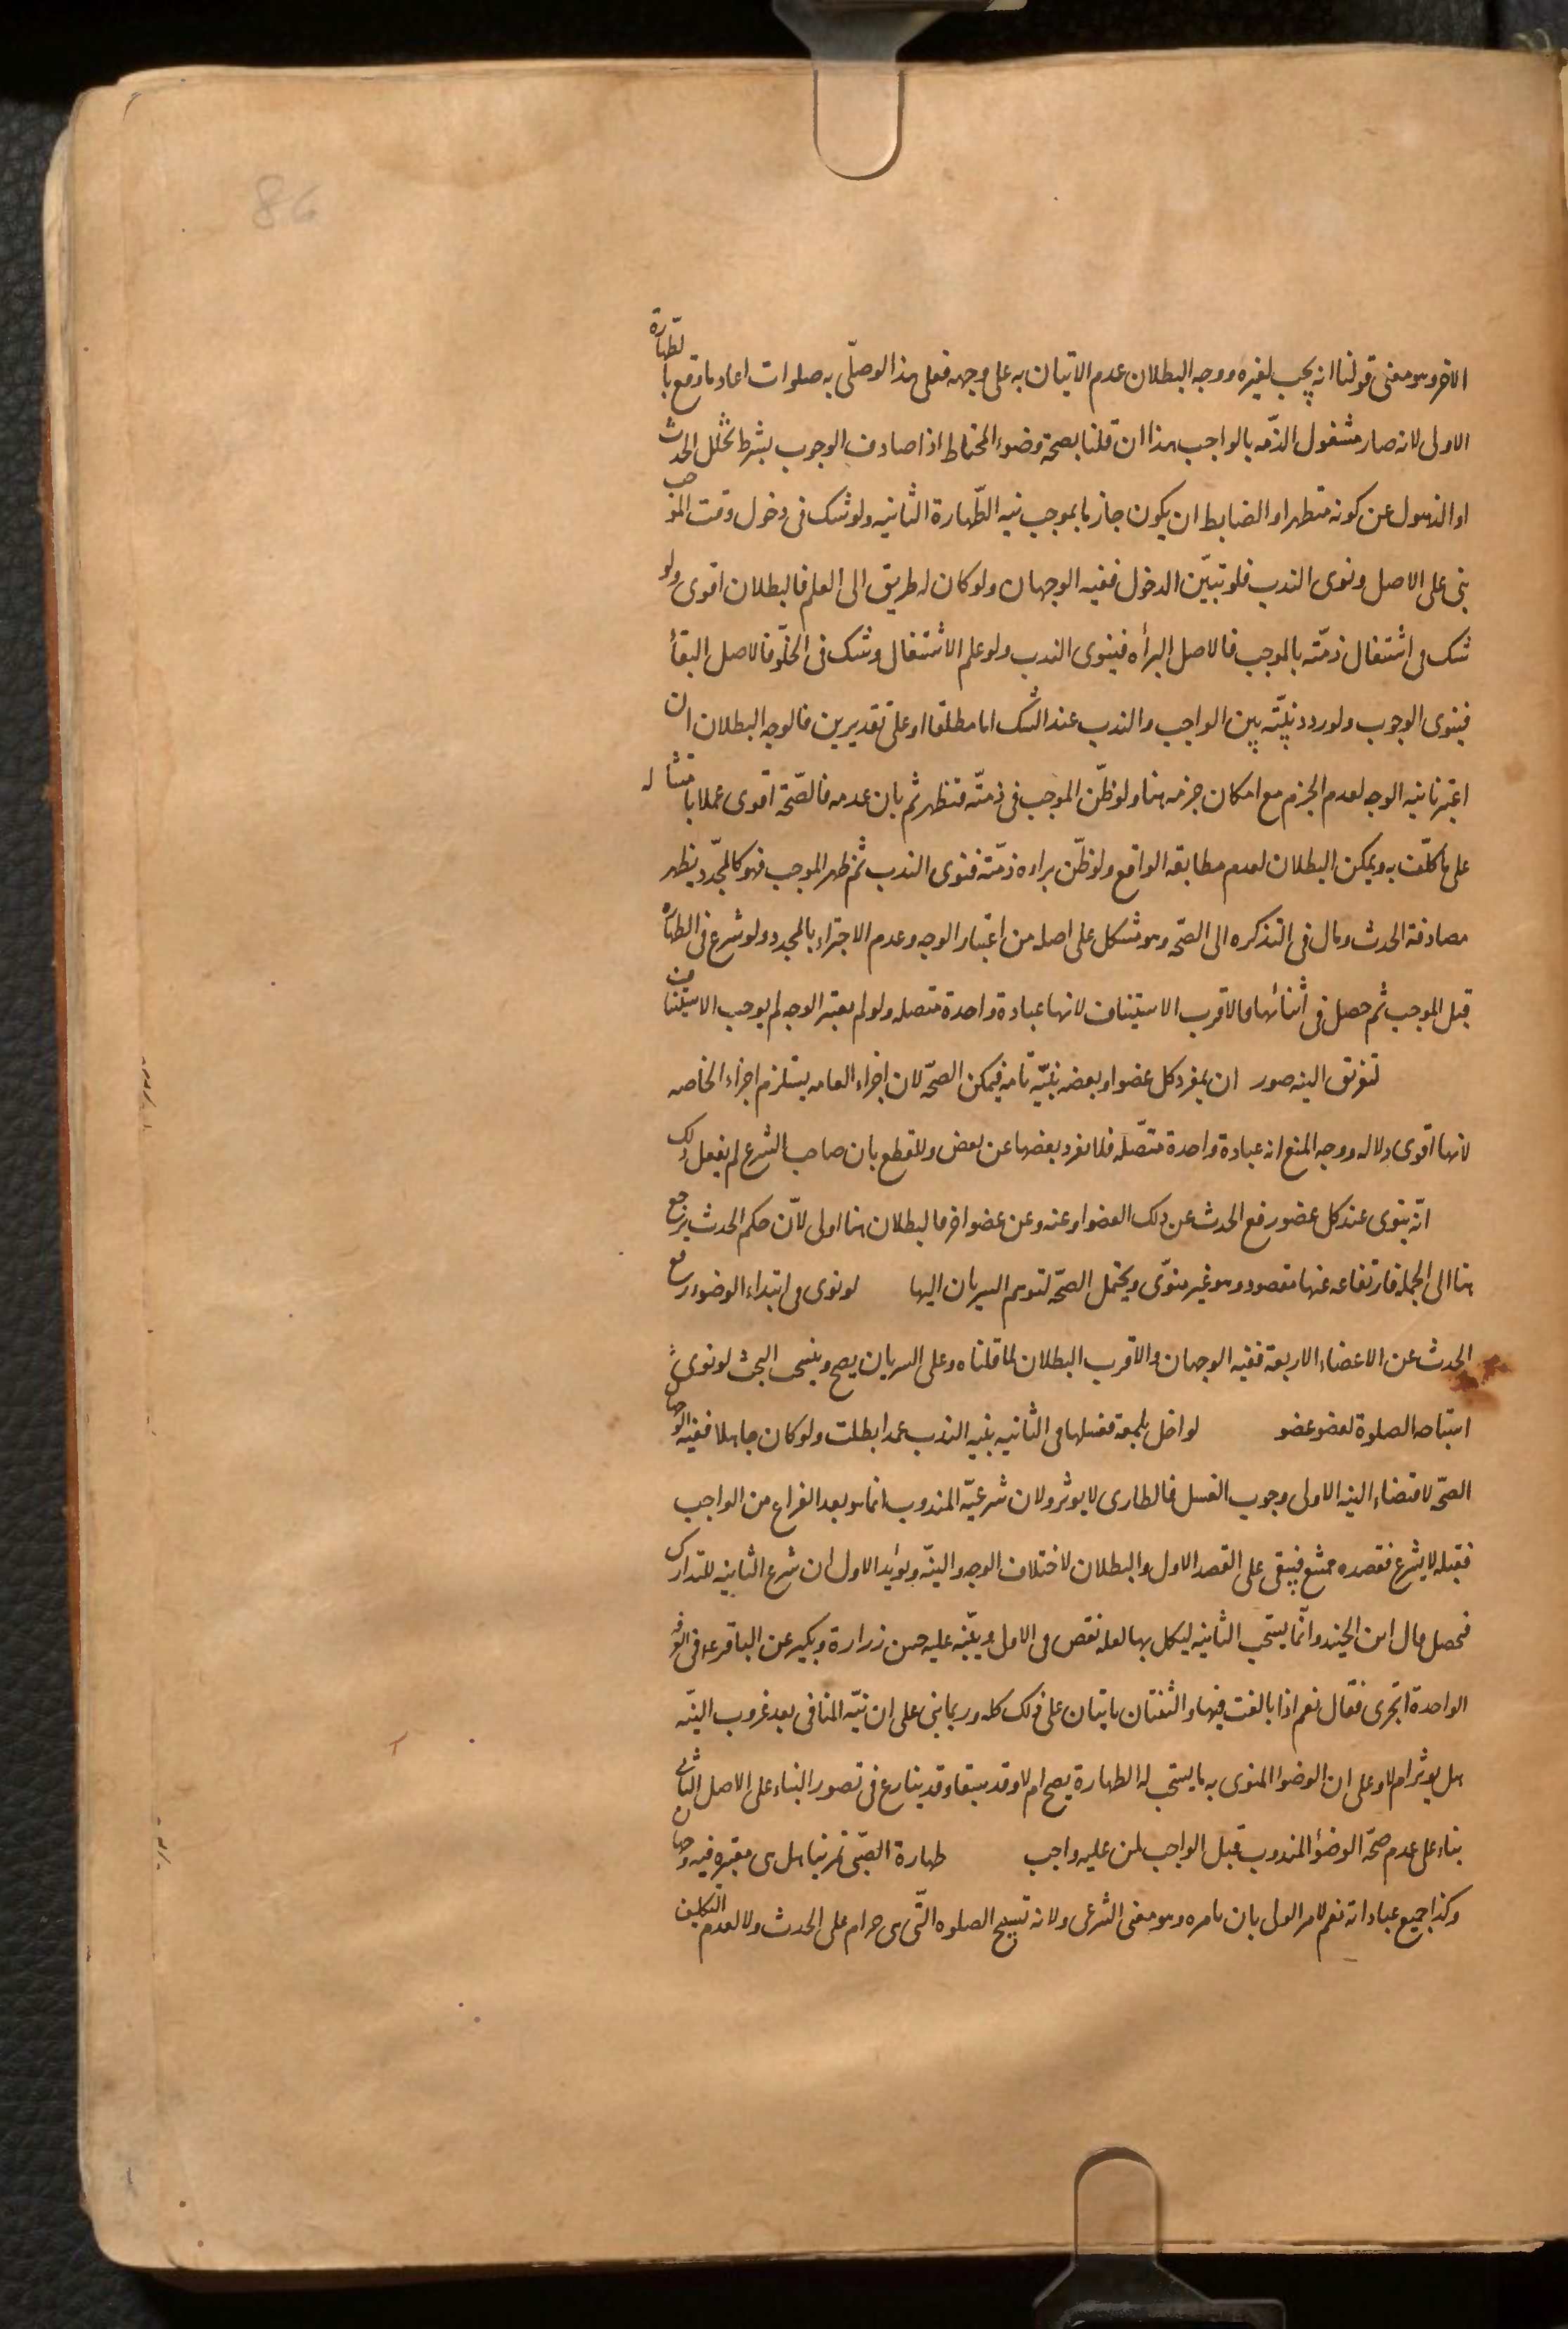 86
الاخر وهو معنى قولنا انه يجب لغيره ووجه البطلان عدم الاتيان به على وجهه فعلى هذا لو صلّى به صلوات اعاد ما وقع بالطّهارة
الاولى لانه صار مشغول الذمّه بالواجب هذا ان قلنا بصحة وضوء المحتاط اذا صادف الوجوب بشرط تخلّل الحدث
او الذهول عن كونه متطهرا والضابط ان يكون جازما بموجب نيه الطّهارة الثانيه ولو شك فى دخول وقت الموجب
بنى على الاصل ونوى الندب فلو تبيّن الدخول ففيه الوجهان ولو كان له طريق الى العلم فالبطلان اقوى ولو
شك فى اشتغال ذمّته بالموجب فالاصل البرأه فينوى الندب ولو علم الاشتغال وشك فى الخلّو فالاصل البقأ
فينوى الوجوب ولو ردد نيّته بين الواجب والندب عند الشك اما مطلقا او على تقديرين فالوجه البطلان ان
اعتبرنا نيه الوجه لعدم الجزم مع امكان جزمه هنا ولو ظنّ الموجب فى ذمتّه فتطهر ثم بان عدمه فالصّحّة اقوى عملا بامتثاله
على ما كلّف به ويمكن البطلان لعدم مطابقه الواقع ولو ظنّ براءه ذمّته فنوى الندب ثم ظهر الموجب فهو كالمجدّد يظهر
مصادفة الحدث ومال فى التذكره الى الصّحّه وهو مشكل على اصله من اعتبار الوجه وعدم الاجتزاء بالمجدد ولو شرع فى الطهاره
قبل الموجب ثم حصل فى اثنائها فالاقرب الاستيناف لانها عبادة واحدة متصله ولو لم يعتبر الوجه لم يوجب الاستيناف
لتفريق النيه صور ان يفرد كل عضو او بعضه بنيّه تامه فيمكن الصحّه لان اجزاء العامه يستلزم اجزاء الخاصه
لانها اقوى دلاله ووجه المنع انه عبادة واحدة متّصله فلا يفرد بعضها عن بعض وللقطع بان صاحب الشرع لم يفعل ذلك
انّه ينوى عند كل عضو رفع الحدث عن ذلك العضو او عنه وعن عضو اخر فالبطلان هنا اولى لانّ حكم الحدث يرجع
هنا الى الجمله فارتفاعه عنها مقصود وهو غير منوّى ويحتمل الصحّه لتوهم السريان اليها لو نوى فى ابتداء الوضوء رفع
الحدث عن الاعضاء الاربعة ففيه الوجهان والاقرب البطلان لما قلناه وعلى السريان يصح وينسحب البحث لو نوى
استباحه الصلوة لعضو عضو لو اخل بلمعة فغسلها فى الثانيه بنيه الندب عمدا بطلت ولو كان جاهلا ففيه الوجهان
الصحّه لاقتضاء النيه الاولى وجوب الغسل فالطارى لا يوثر ولان شرعيّه المندوب انما هو بعد الفراغ من الواجب
فقبله لا يشرع فقصده ممتنع فيبقى على القصد الاول والبطلان لاختلاف الوجه والنيّه ويؤيد الاول ان شرع الثانيه للتدارك
فحصل قال ابن الجنيد وانّما يستحب الثانيه ليكمل بها لعله نقص فى الاول وينّبه عليه حسن زرارة وبكير عن الباقر ع فى الغرفه
الواحدة اتجزى فقال نعم اذا بالغت فيها والثنتان ياتيان على ذلك كله وربما بنى على ان نيّه المنافى بعد غروب النيّه
هل يوثر ام لا وعلى ان الوضوا المنوى به ما يستحب له الطهارة يصح ام لا وقد سبقا وقد ينازع فى تصور البناء على الاصل الثانى
بناء على عدم صحّة الوضؤ المندوب قبل الواجب لمن عليه واجب طهارة الصّبّى تمرينا هل هى معتبره فيه وجهان
وكذا جميع عباداته نعم لامر الولى بان يامره وهو معنى الشرعى ولانه تبيح الصلوه التّى هى حرام على المحدث ولا لعدم التكليف